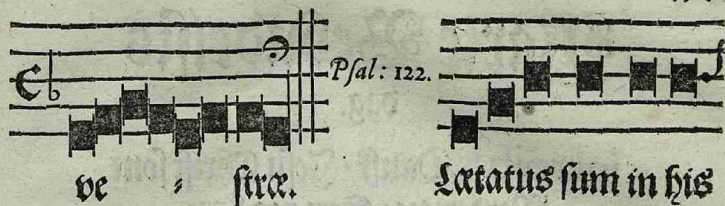 Psal: 122.
ve - stræ. Lætatus sum in his